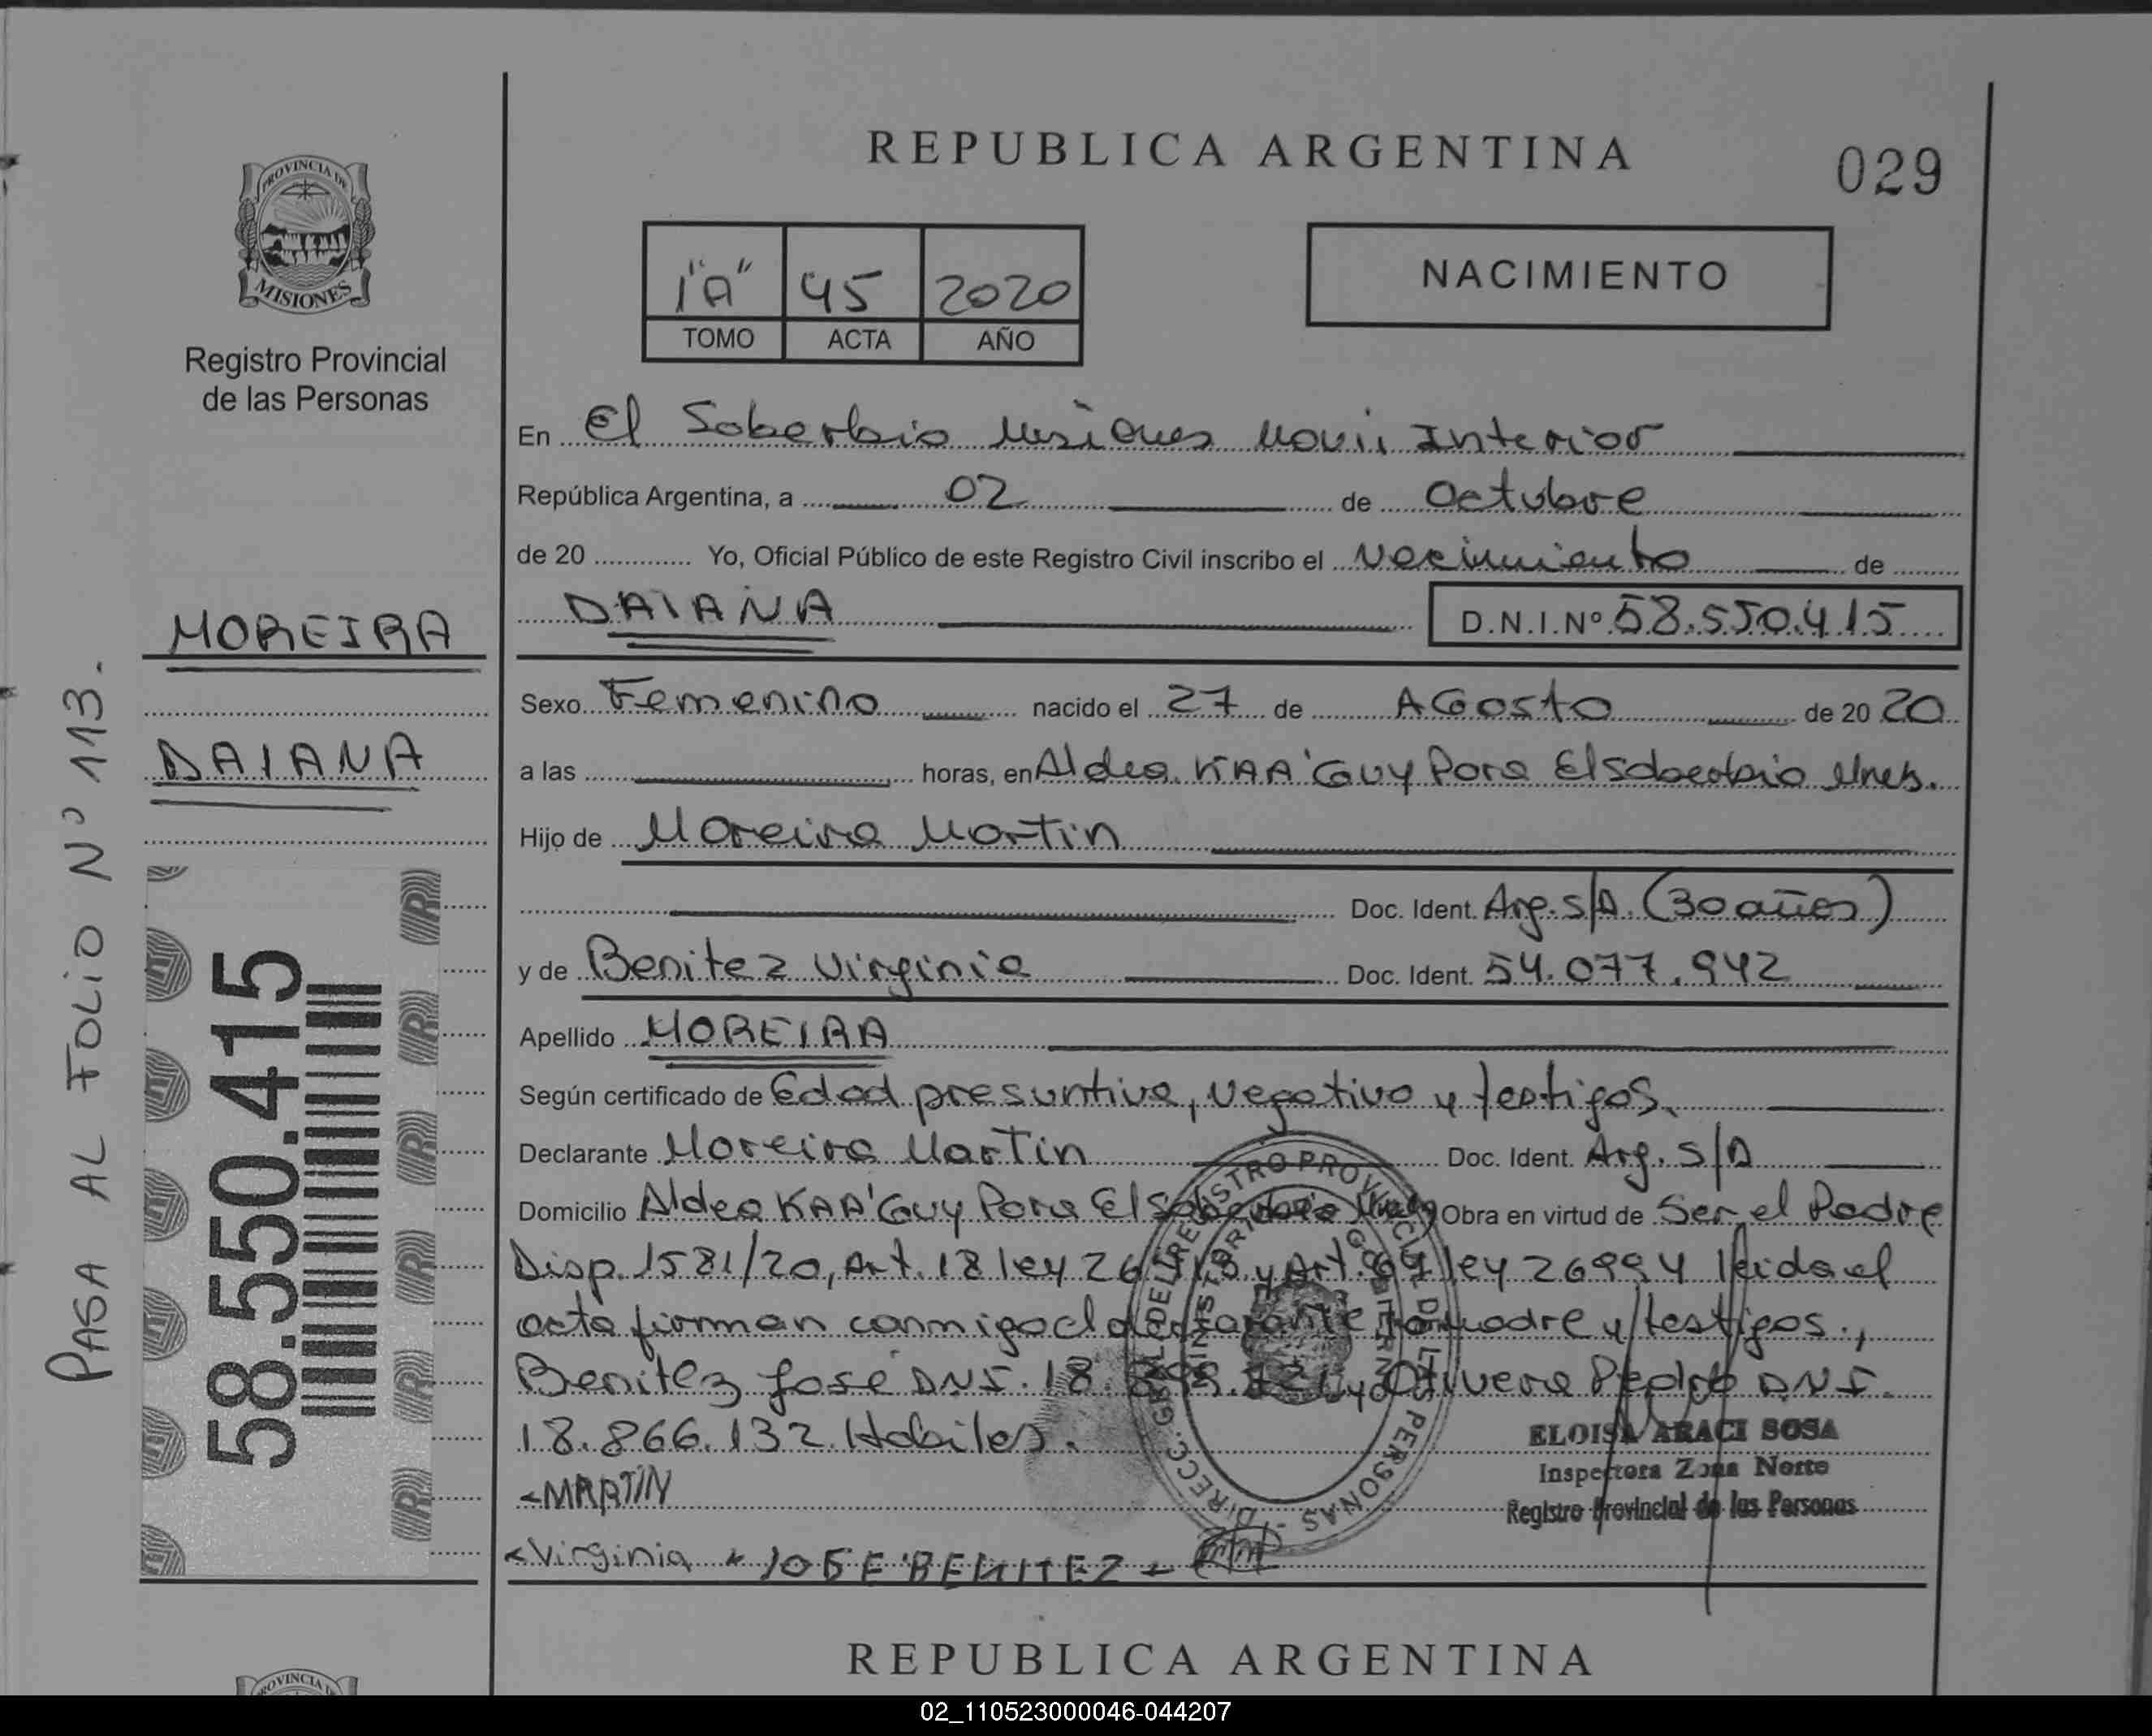 REPUBLICA ARGENTINA
029
PROVINCIA DE
MISIONES
Registro Provincial
de las Personas
1"A" 45 2020
TOMO ACTA AÑO
NACIMIENTO
En El Soberbio Misiones Movil Interior
República Argentina, a 02 de Octubre
de 20 Yo, Oficial Público de este Registro Civil inscribo el Nacimiento de
DAIANA D.N.I.Nº 58.550.415
MOREIRA
DAIANA
PASA AL FOLIO Nº 113.
58.550.415
Sexo Femenino nacido el 27 de AGosto de 20 20
a las horas, en Aldea KAA'Guy Pora El soberbio Mnes.
Hijo de Moreira Martin
Doc. Ident. Arg. S/D. (30 años)
y de Benitez Virginia Doc. Ident. 54.077.942
Apellido MOREIRA
Según certificado de Edad presuntiva, Negativo y testigos.
Declarante Moreira Martin Doc. Ident. Arg. S/D
Domicilio Aldea KAA'Guy Pora El Soberbio Mnes Obra en virtud de Ser el Padre
Disp. 1581/20, Art. 18 ley 26413 y Art. 64 ley 26994 leida el
acta firman conmigo el declarante la madre y testigos.,
Benitez José DNI. 18. y Olivera Pedro DNI.
18.866.132. Habiles.
MARTIN
Virginia JOSE BENITEZ
ELOISA ARACI SOSA
Inspectora Zona Norte
Registro Provincial de las Personas
REPUBLICA ARGENTINA
PROVINCIA
02_110523000046-044207